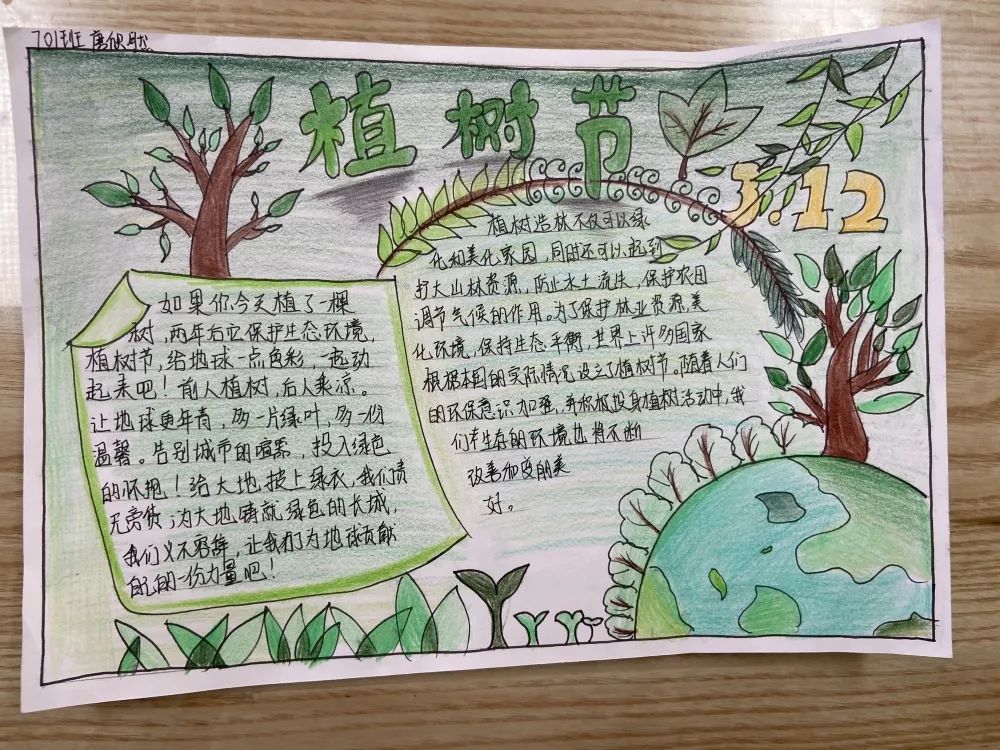 701班
植树节
3.12
如果你今天植了一棵
树，两年后它保护生态环境，
植树节，给地球一点色彩，一起动
起来吧！前人植树，后人乘凉。
让地球更年青，多一片绿叶，多一份
温馨。告别城市的喧嚣，投入绿色
的怀抱！给大地披上绿衣，我们责
无旁贷；为大地铸就绿色的长城，
我们义不容辞，让我们为地球贡献
自己的一份力量吧！
植树造林不仅可以绿
化和美化家园，同时还可以起到
护大山林资源，防止水土流失，保护农田
调节气候的作用。为了保护林业资源，美
化环境，保持生态平衡，世界上许多国家
根据本国的实际情况设立了植树节。随着人们
的环保意识加强，并积极投身植树活动中，我
们生存的环境也将不断
改善和的美
好。